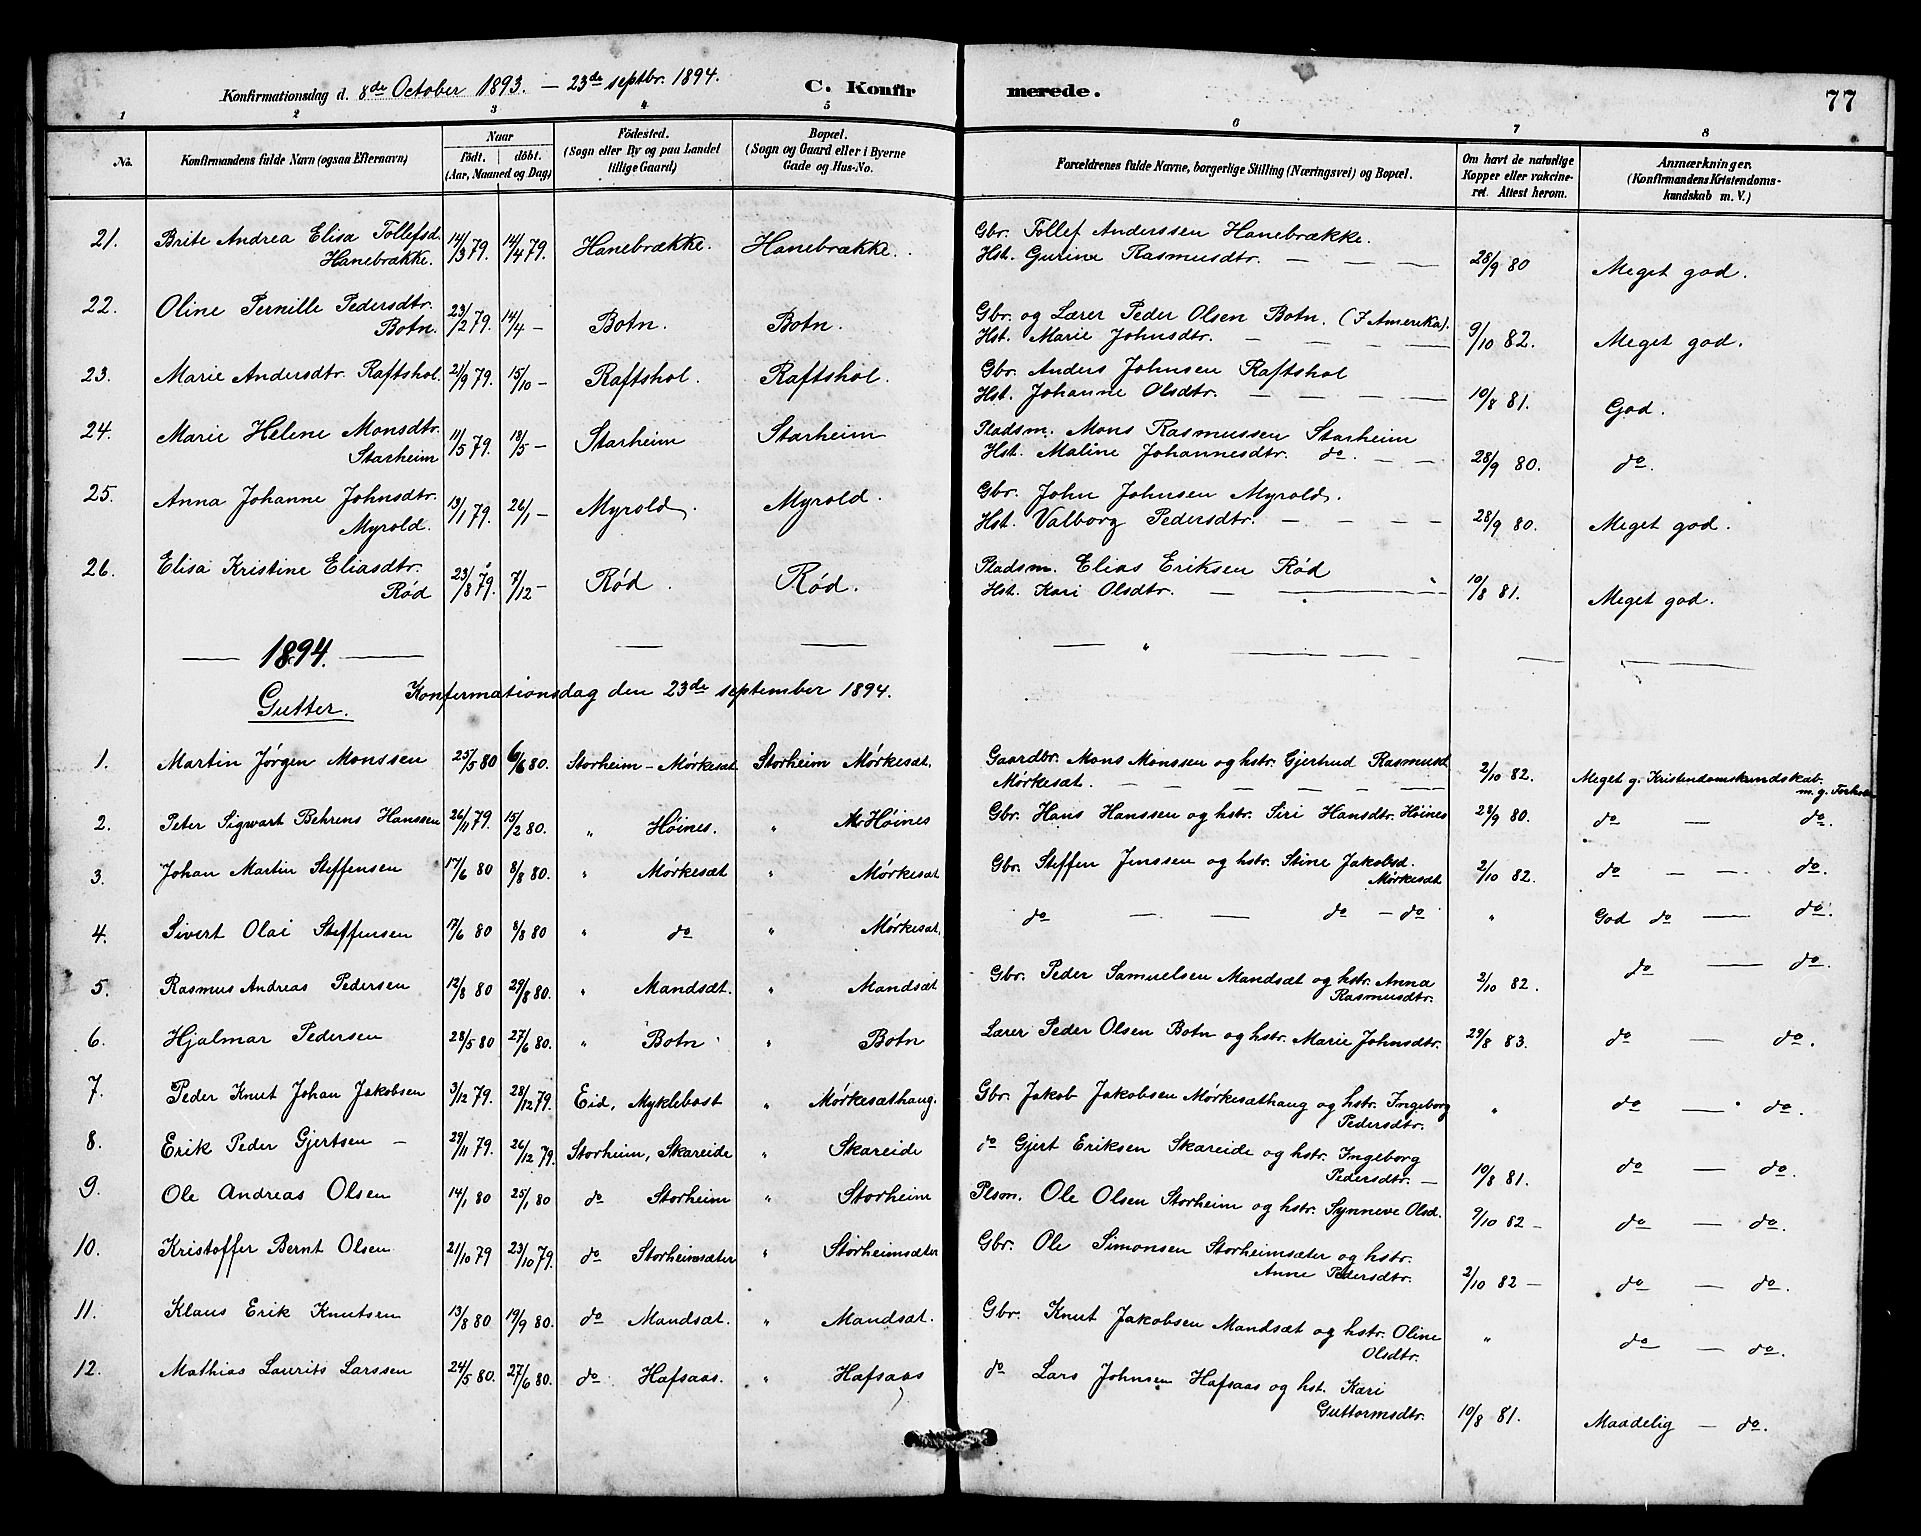 Konfirmationsdag d. 8de October 1893. — 23de septbr. 1894. C. Konfirmerede. 77
1 2 3 4 5 6 7 8
No. Konfirmandens fulde Navn (ogsaa Efternavn) Naar födt. döbt. (Aar, Maaned og Dag) Födested. (Sogn eller By og paa Landet tillige Gaard) Bopæl. (Sogn og Gaard eller i Byerne Gade og Hus-No. Forældrenes fulde Navne, borgerlige Stilling (Næringsvei) og Bopæl. Om havt de naturlige Kopper eller vakcineret. Attest herom. Anmærkninger. (Konfirmandens Kristendomskundskab m. V.)
21. Brite Andrea Elisa Tollefsd. Hanebrække. 14/3 79. 14/4 79. Hanebrække. Hanebrække. Gbr. Tollef Anderssen Hanebrække. Hst. Gurine Rasmusdtr. — — — 28/9 80 Meget god.
22. Oline Pernille Pedersdtr. Botn. 23/2 79. 14/4 — Botn. Botn. Gbr. og Lærer Peder Olsen Botn. (I Amerika). Hst. Marie Johnsdtr. — — — — 9/10 82. Meget god.
23. Marie Andersdtr. Raftshol. 21/9 79. 15/10 — Raftshol. Raftshol. Gbr. Anders Johnsen Raftshol Hst. Johanne Olsdtr. — — — — 10/8 81. God.
24. Marie Helene Monsdtr. Starheim 11/5 79. 18/5 — Starheim Starheim Pladsm. Mons Rasmussen Starheim Hst. Maline Johannesdtr. do. — — 28/9 80. do.
25. Anna Johanne Johnsdtr. Myrold. 13/1 79. 26/1 — Myrold. Myrold. Gbr. John Johnsen Myrold. Hst. Valborg Pedersdtr. — — — — 28/9 80. Meget god.
26. Elisa Kristine Eliasdtr. Rød 23/8 79. 7/12 — Rød. Rød. Pladsm. Elias Eriksen Rød Hst. Kari Olsdtr. — — 10/8 81. Meget god.
— 1894. —
Gutter. Konfermationsdag den 23de september 1894.
1. Martin Jörgen Monssen 25/5 80 6/6 80. Storheim — Mörkesæt Storheim Mörkesæt. Gaardbr. Mons Monssen og hstr. Gjertrud Rasmusd. Mörkesæt. — — — — — — 2/10 82. Meget g. Kristendomskundskab. m. g. Forhold
2. Peter Sigwart Behrens Hanssen 26/11 79. 15/2 80. " Höines. " Höines Gbr. Hans Hanssen og hstr. Siri Hansdtr. Höines 28/9 80. do — do.
3. Johan Martin Steffensen 17/6 80 8/8 80. " Mörkesæt " Mörkesæt Gbr. Steffen Jenssen og hstr. Stine Jakobsd. Mörkesæt 2/10 82. do — — do.
4. Sivert Olai Steffensen 17/6 80 8/8 80 " do " Mörkesæt. do — — do — do " God do — do.
5. Rasmus Andreas Pedersen 12/8 80 29/8 80. " Mandsæt. " Mandsæt Gbr. Peder Samuelsen Mandsæt og hstr. Anna Rasmusdtr. 2/10 82. do — do.
6. Hjalmar Pedersen 28/5 80 27/6 80. " Botn " Botn Lærer Peder Olsen Botn og hstr. Marie Johnsdtr. 29/8 83. do — do.
7. Peder Knut Johan Jakobsen 3/12 79. 28/12 79. Eid, Myklebost " Mörkesæthaug. Gbr. Jakob Jakobsen Mörkesæthaug og hstr. Ingeborg Pedersdtr. " do — do.
8. Erik Peder Gjertsen — 29/11 79. 26/12 79. Storheim, Skareide " Skareide do Gjert Eriksen Skareide og hstr. Ingeborg Pedersdtr. — 10/8 81. do — do.
9. Ole Andreas Olsen 14/1 80 25/1 80 do Storheim " Storheim Plsm. Ole Olsen Storheim og hstr. Synneve Olsd. 9/10 82 — do — do.
10. Kristoffer Bernt Olsen 21/10 79 23/10 79. do Storheimsæter " Storheimsæter Gbr. Ole Simonsen Storheimsæter og hstr. Anne Pedersdtr. 2/10 82 — do — do.
11. Klaus Erik Knutsen 13/8 80 19/9 80. do Mandsæt. " Mandsæt. Gbr. Knut Jakobsen Mandsæt og hstr. Oline Olsdtr. " do — do.
12. Mathias Laurits Larssen 24/5 80. 27/6 80. do Hafsaas. " Hafsaas do Lars Johnsen Hafsaas og hst. Kari Guttormsdtr. 10/8 81. Maadelig — do.